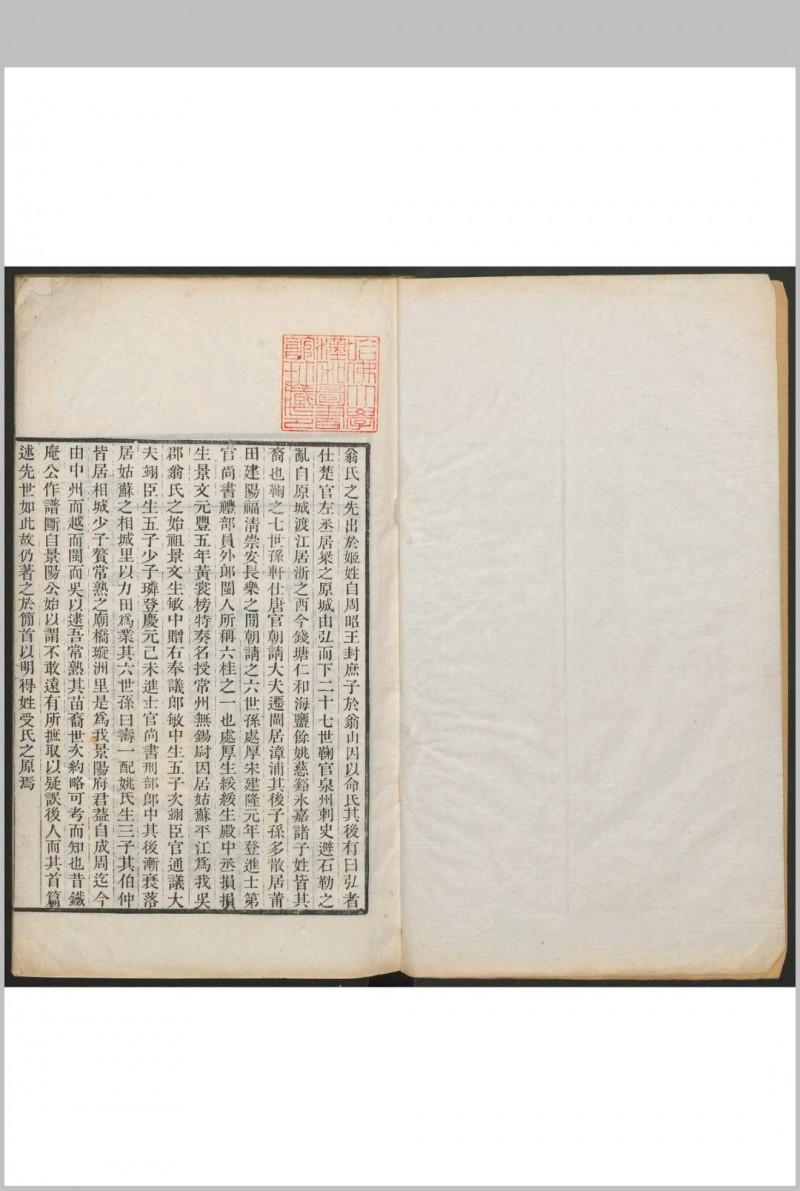 哈佛大學
漢和圖書
館珍藏印
翁氏之先出於姬姓自周昭王封庶子於翁山因以命氏其後有曰弘者
仕楚官左丞居梁之原城由弘而下二十七世鞠官泉州刺史避石勒之
亂自原城渡江居浙之西今錢塘仁和海鹽餘姚慈谿永嘉諸子姓皆其
裔也鞠之七世孫軒仕唐官朝請大夫遷閩居漳浦其後子孫多散居莆
田建陽福清崇安長樂之閒朝請之六世孫處厚宋建隆元年登進士第
官尚書禮部員外郎閩人所稱六桂之一也處厚生綏綏生殿中丞損損
生景文元豐五年黃裳榜特奏名授常州無錫尉因居姑蘇平江為我吳
郡翁氏之始祖景文生敏中贈右奉議郎敏中生五子次翊臣官通議大
夫翊臣生五子少子璘登慶元己未進士官尚書刑部郎中其後漸衰落
居姑蘇之相城里以力田為業其六世孫曰壽一配姚氏生三子其伯仲
皆居相城少子贅常熟之廟橋璇洲里是為我景陽府君蓋自成周迄今
由中州而越而閩而吳以逮吾常熟其苗裔世次約略可考而知也昔鐵
庵公作譜斷自景陽公始以謂不敢遠有所摭取以疑誤後人而其首篇
述先世如此故仍著之於簡首以明得姓受氏之原焉